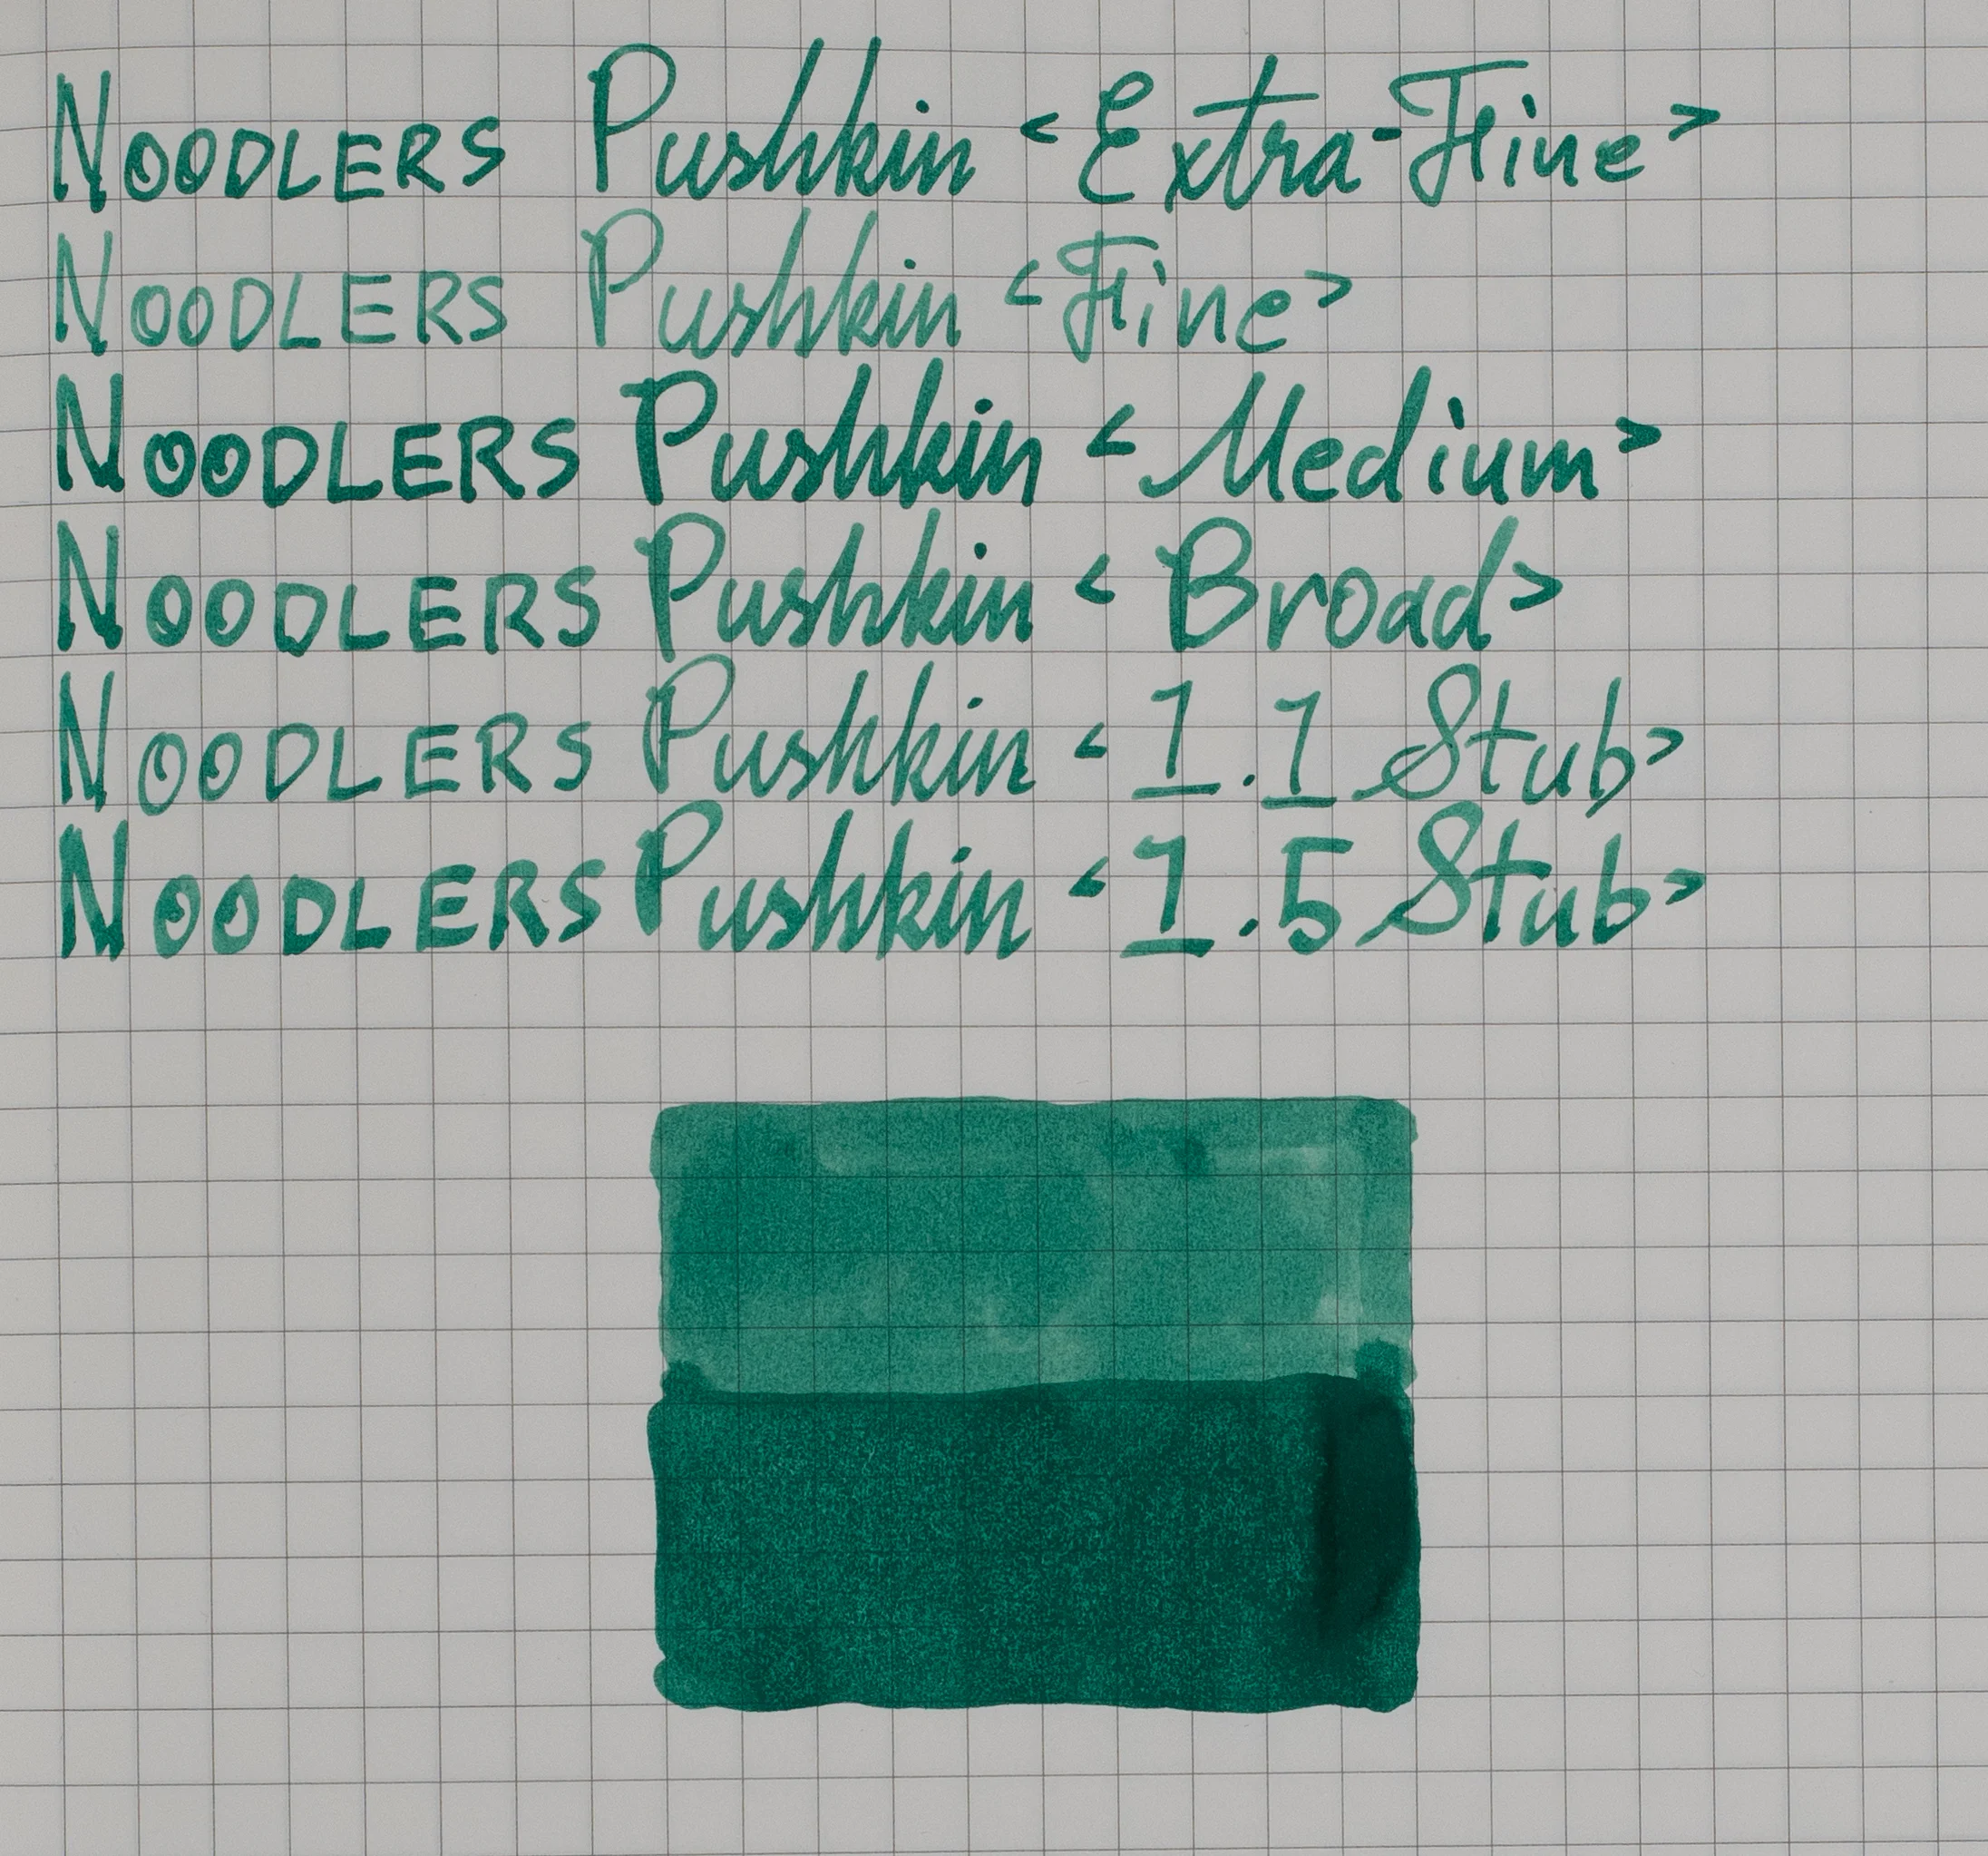 NOODLERS Pushkin <Extra-Fine>
NOODLERS Pushkin <Fine>
NOODLERS Pushkin <Medium>
NOODLERS Pushkin <Broad>
NOODLERS Pushkin <1.1 Stub>
NOODLERS Pushkin <1.5 Stub>